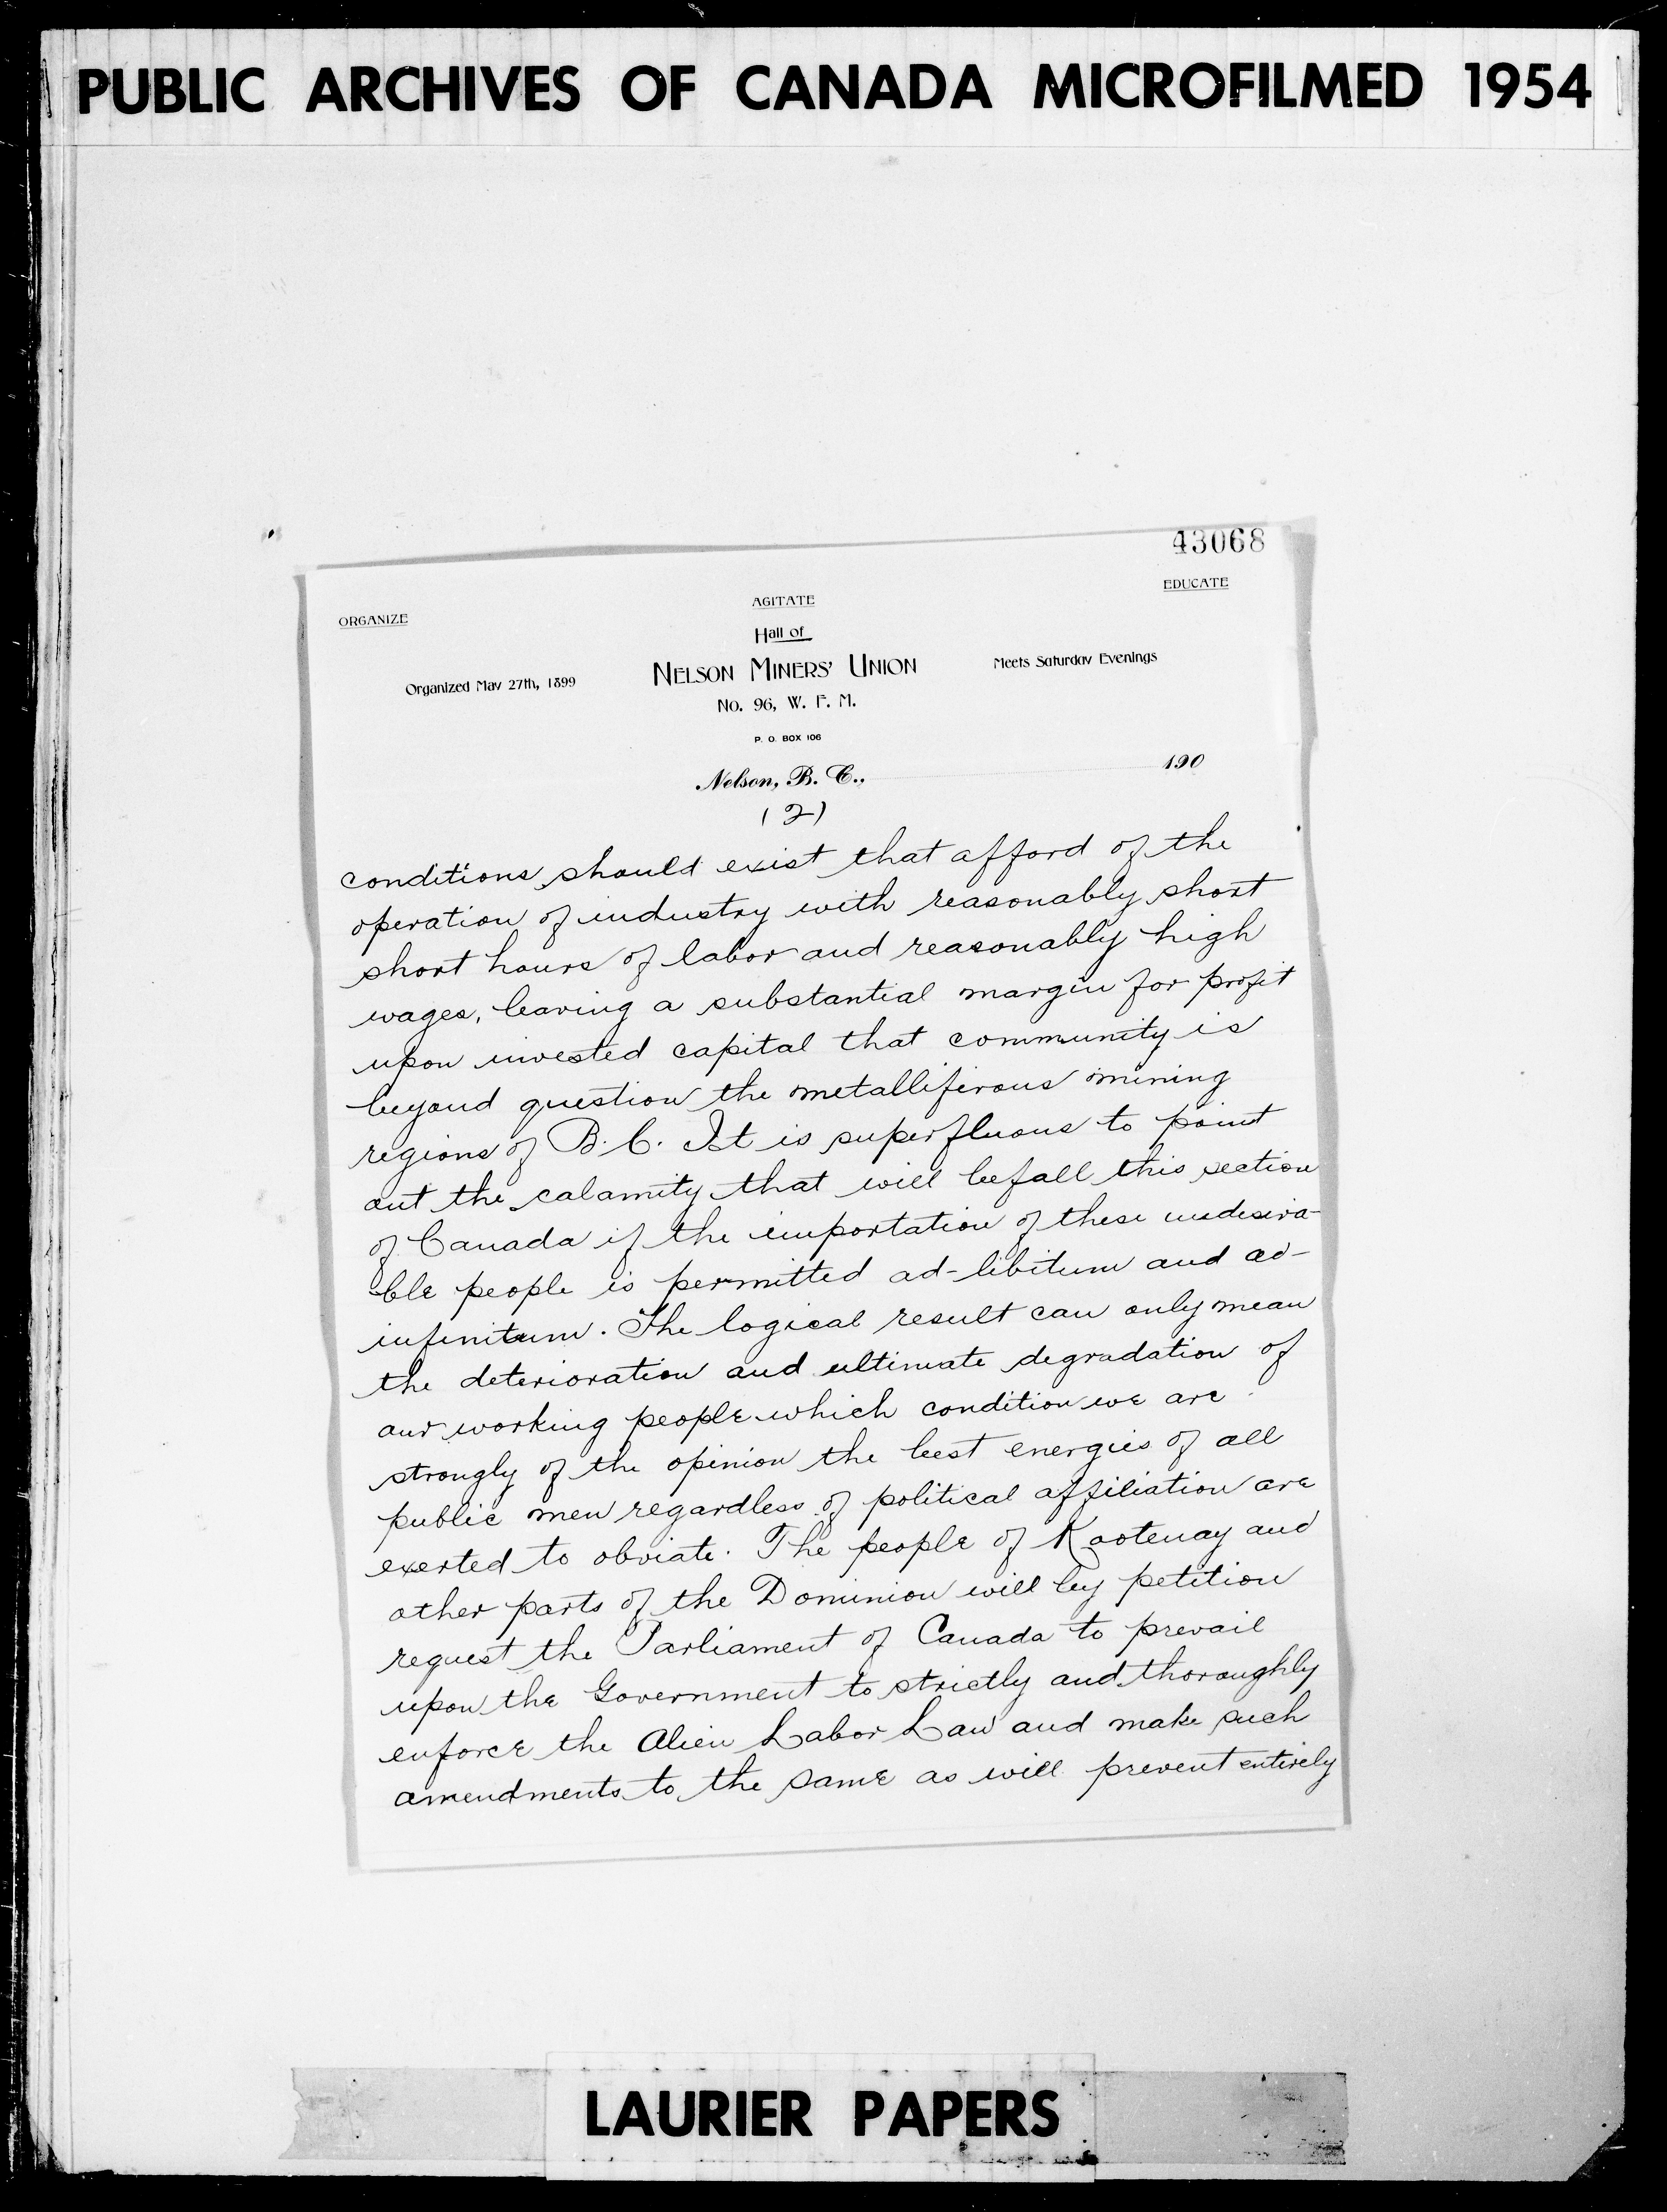 PUBLIC ARCHIVES OF CANADA MICROFILMED 1954
43068
ORGANIZE
AGITATE
EDUCATE
Hall of
NELSON MINERS' UNION
Organized May 27th, 1899
Meets Saturday Evenings
No. 96, W. F. M.
P. O. BOX 106
Nelson, B. C., 190
(2)
conditions should exist that afford of the
operation of industry with reasonably short
short hours of labor and reasonably high
wages, leaving a substantial margin for profit
upon invested capital that community is
beyond question the metalliferous mining
regions of B.C. It is superfluous to point
out the calamity that will befall this section
of Canada if the importation of these undesira-
ble people is permitted ad-libitum and ad-
infinitum. The logical result can only mean
the deterioration and ultimate degradation of
our working people which condition we are
strongly of the opinion the best energies of all
public men regardless of political affiliation are
exerted to obviate. The people of Kootenay and
other parts of the Dominion will by petition
request the Parliament of Canada to prevail
upon the Government to strictly and thoroughly
enforce the Alien Labor Law and make such
amendments to the same as will prevent entirely
LAURIER PAPERS